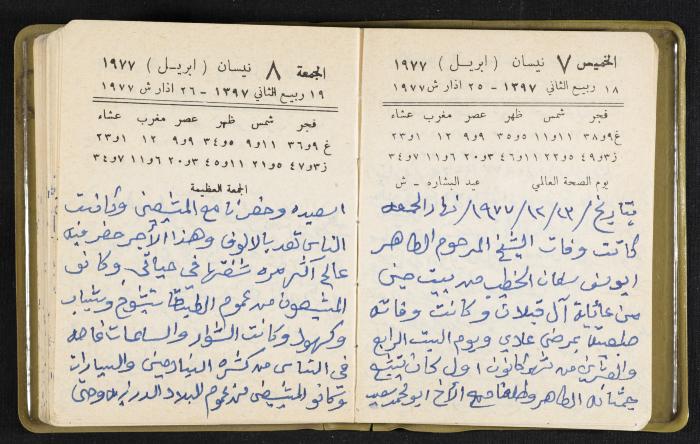 الخميس ٧ نيسان ( ابريـل ) ١٩٧٧
١٨ ربيع الثاني ١٣٩٧ - ٢٥ اذار ش ١٩٧٧
فجر شمس ظهر عصر مغرب عشاء
غ ٩و٣٨ ١١و١١ ٥و٣٥ ٩و٩ ١٢ ١و٢٣
ز ٣و٤٩ ٥و٢٢ ١١و٤٦ ٣و٢٠ ٦و١١ ٧و٣٤
يوم الصحة العالمي عيد البشاره - ش
بتاريخ / ٢٣ / ١٢ / ١٩٧٧ / نهار الجمعه
كانت وفات الشيخ المرحوم الطاهر
ابو يوسف سلمان الخطيب من بيت جن
من عائلة آل قبلان وكانت وفاته
عرضي عادي ويوم السبت الرابع
والعشرين من شهر كانون اول كان
جثمانه الطاهر الأخ ابو محمد سعيد
الجمعة ٨ نيسان ( ابريـل ) ١٩٧٧
١٩ ربيع الثاني ١٣٩٧ - ٢٦ اذار ش ١٩٧٧
فجر شمس ظهر عصر مغرب عشاء
غ ٩و٣٦ ١١و٩ ٥و٣٤ ٩و٩ ١٢ ١و٢٣
ز ٣و٤٧ ٥و٢١ ١١و٤٥ ٣و٢٠ ٦و١١ ٧و٣٤
الجمعة العظيمة
وحضرنا مع المشيعين وكانت
الناس تعد بالالوف وهذا الأجر حضر فيه
عالم اكثر مره شفتها في حياتي وكانو
المشيعون من عموم الطبقات شيوخ وشباب
وكهول وكانت الشوارع والساحات
في الناس من كثرة والسيارات
وكانو المشيعين من عموم البلاد الدرزيه وحتى